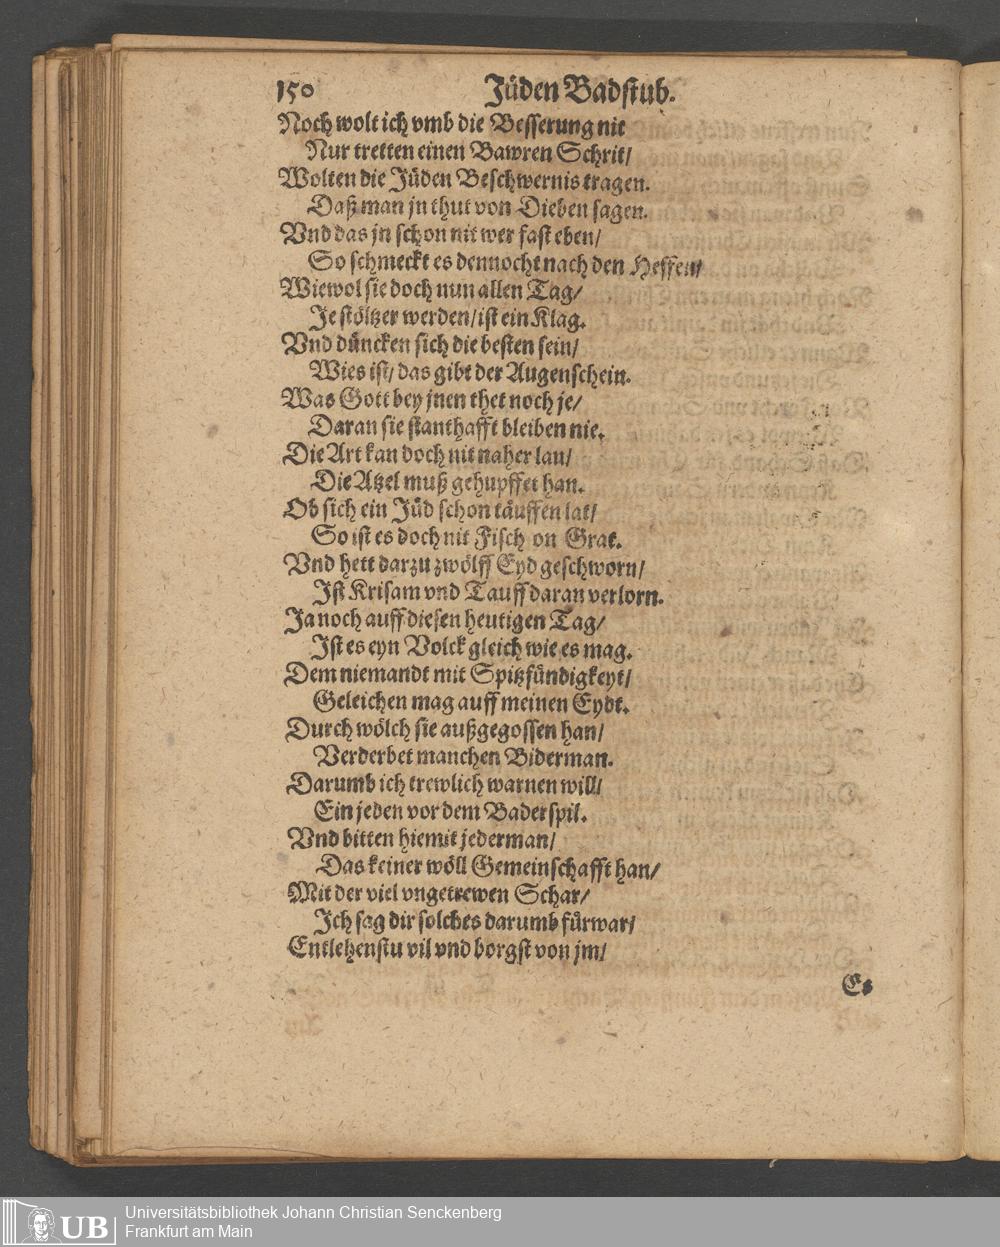 150 Jüden Badstub.
Noch wolt ich vmb die Besserung nit
Nur tretten einen Bawren Schrit/
Wolten die Jüden Beschwernis tragen.
Daß man jn thut von Dieben sagen.
Vnd das jn schon nit wer fast eben/
So schmeckt es dennocht nach den Heffen/
Wiewol sie doch nun allen Tag/
Je stöltzer werden/ ist ein Klag.
Vnd düncken sich die besten sein/
Wies ist/ das gibt der Augenschein.
Was Gott bey jnen thet noch je/
Daran sie stanthafft bleiben nie.
Die Art kan doch nit naher lan/
Die Atzel muß gehupffet han.
Ob sich ein Jüd schon täuffen lat/
So ist es doch nit Fisch on Grat.
Vnd hett darzu zwölff Eyd geschworn/
Ist Krisam vnd Tauff daran verlorn.
Ja noch auff diesen heutigen Tag/
Ist es eyn Volck gleich wie es mag.
Dem niemandt mit Spitzfündigkeyt/
Geleichen mag auff meinen Eydt.
Durch wölch sie außgegossen han/
Verderbet manchen Biderman.
Darumb ich trewlich warnen will/
Ein jeden vor dem Baderspil.
Vnd bitten hiemit jederman/
Das keiner wöll Gemeinschafft han/
Mit der viel vngetrewen Schar/
Ich sag dir solches darumb fürwar/
Entlehenstu vil vnd borgst von jm/
Es
UB Universitätsbibliothek Johann Christian Senckenberg
Frankfurt am Main